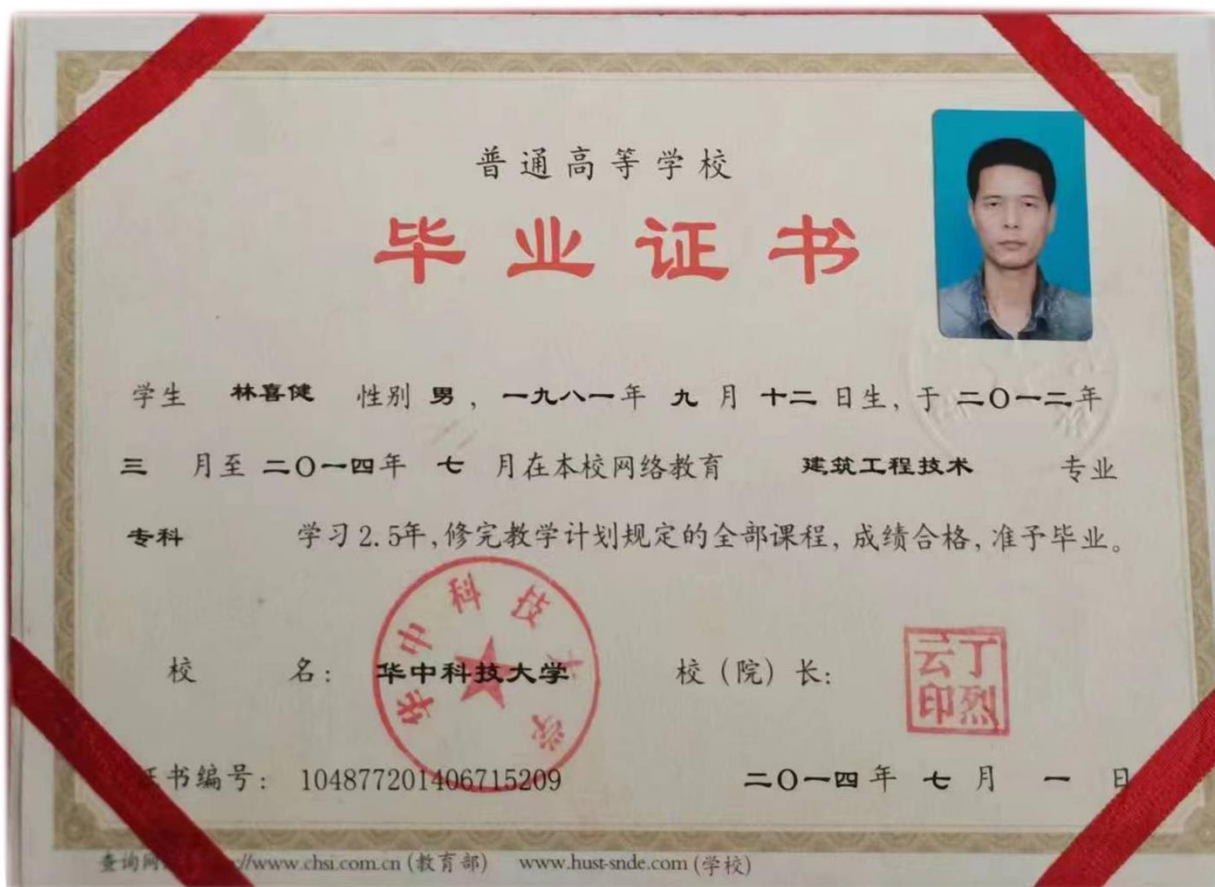 普通高等学校
毕业证书
学生 林喜健 性别 男，一九八一年 九 月 十二 日生，于 二〇一二年
三 月至 二〇一四年 七 月在本校网络教育 建筑工程技术 专业
专科 学习2.5年，修完教学计划规定的全部课程，成绩合格，准予毕业。
校 名：华中科技大学 校（院）长：
华中科技大学
丁烈云印
书编号：104877201406715209 二〇一四年 七 月 一 日
查询网 //www.chsi.com.cn (教育部) www.hust-snde.com (学校)